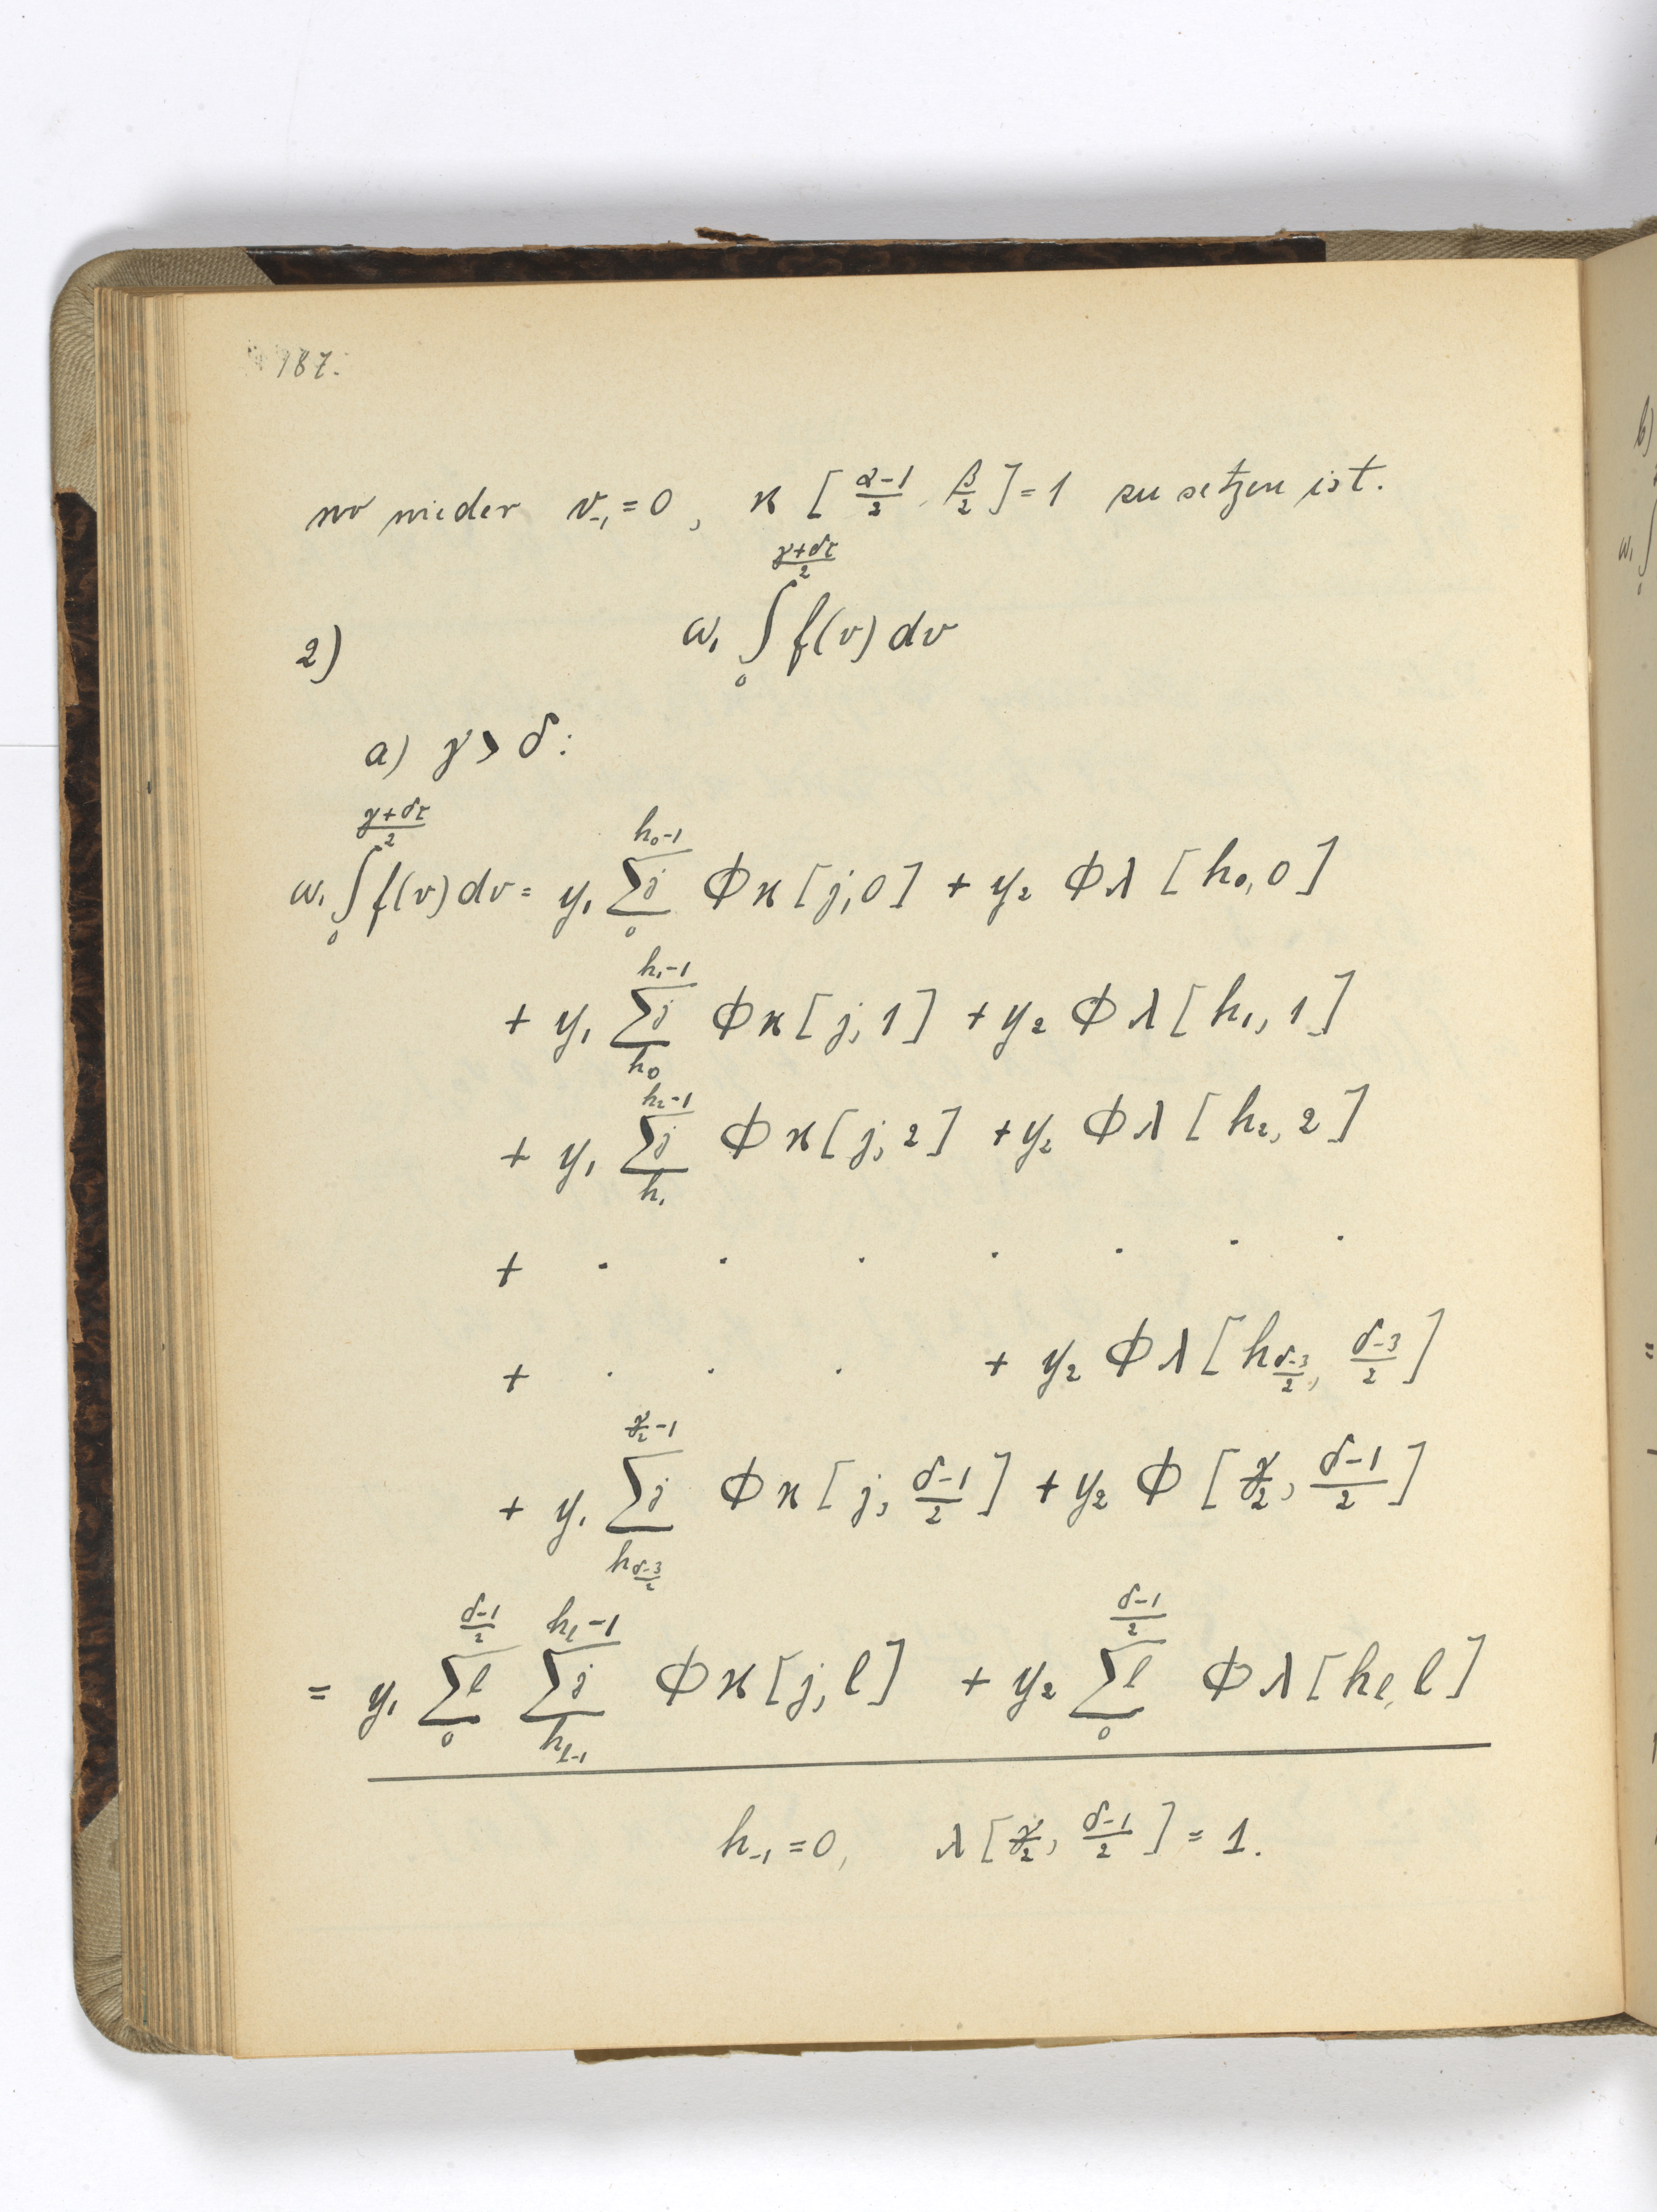 187.
wo wieder v₋₁ = 0, ϰ [ (α−1)/2, β/2 ] = 1 zu setzen ist.
2) ω₁ ∫₀^{(γ+δτ)/2} f(v) dv
a) γ > δ:
ω₁ ∫₀^{(γ+δτ)/2} f(v) dv = y₁ Σⱼ₀^{h₀−1} ϕϰ [j, 0] + y₂ ϕλ [h₀, 0]
+ y₁ Σⱼ_{h₀}^{h₁−1} ϕϰ [j, 1] + y₂ ϕλ [h₁, 1]
+ y₁ Σⱼ_{h₁}^{h₂−1} ϕϰ [j, 2] + y₂ ϕλ [h₂, 2]
+ . . . . . . .
+ . . . + y₂ ϕλ [h_{(δ−3)/2}, (δ−3)/2]
+ y₁ Σⱼ_{h_{(δ−3)/2}}^{γ/2−1} ϕϰ [j, (δ−1)/2] + y₂ ϕ [γ/2, (δ−1)/2]
= y₁ Σl₀^{(δ−1)/2} Σⱼ_{h_{l−1}}^{h_l−1} ϕϰ [j, l] + y₂ Σl₀^{(δ−1)/2} ϕλ [h_l, l]
h₋₁ = 0, λ [γ/2, (δ−1)/2] = 1.